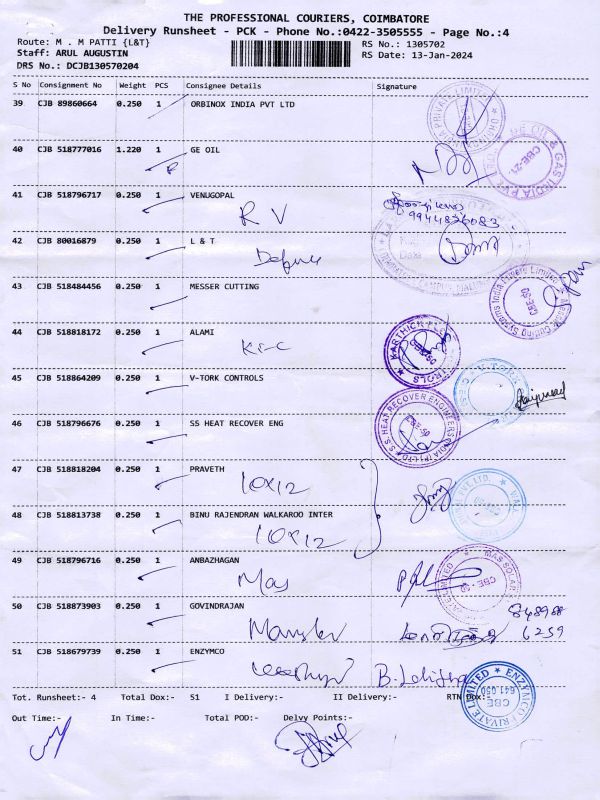 THE PROFESSIONAL COURIERS, COIMBATORE
Delivery Runsheet - PCK - Phone No.:0422-3505555 - Page No.:4
Route: M . M PATTI {L&T}
RS No.: 1305702
Staff: ARUL AUGUSTIN
RS Date: 13-Jan-2024
DRS No.: DCJB130570204
S No Consignment No Weight PCS Consignee Details Signature
39 CJB 89860664 0.250 1 ORBINOX INDIA PVT LTD
40 CJB 518777016 1.220 1 GE OIL
GE OIL & GAS INDIA PVT
CBE-21
41 CJB 518796717 0.250 1 VENUGOPAL
R V
9944826083
42 CJB 80016879 0.250 1 L & T
Defence
43 CJB 518484456 0.250 1 MESSER CUTTING
Messer Cutting Systems India Private Limited
CBE-50
44 CJB 518818172 0.250 1 ALAMI
KFC
45 CJB 518864209 0.250 1 V-TORK CONTROLS
46 CJB 518796676 0.250 1 SS HEAT RECOVER ENG
47 CJB 518818204 0.250 1 PRAVETH
10x12
48 CJB 518813738 0.250 1 BINU RAJENDRAN WALKAROO INTER
10x12
49 CJB 518796716 0.250 1 ANBAZHAGAN
Mas
MAS SOLAR
CBE - 50
50 CJB 518873903 0.250 1 GOVINDRAJAN
6259
51 CJB 518679739 0.250 1 ENZYMCO
ENZYMCO PRIVATE LIMITED
CBE
641 050
Tot. Runsheet:- 4 Total Dox:- 51 I Delivery:- II Delivery:- RTN Dox:-
Out Time:- In Time:- Total POD:- Delvy Points:-